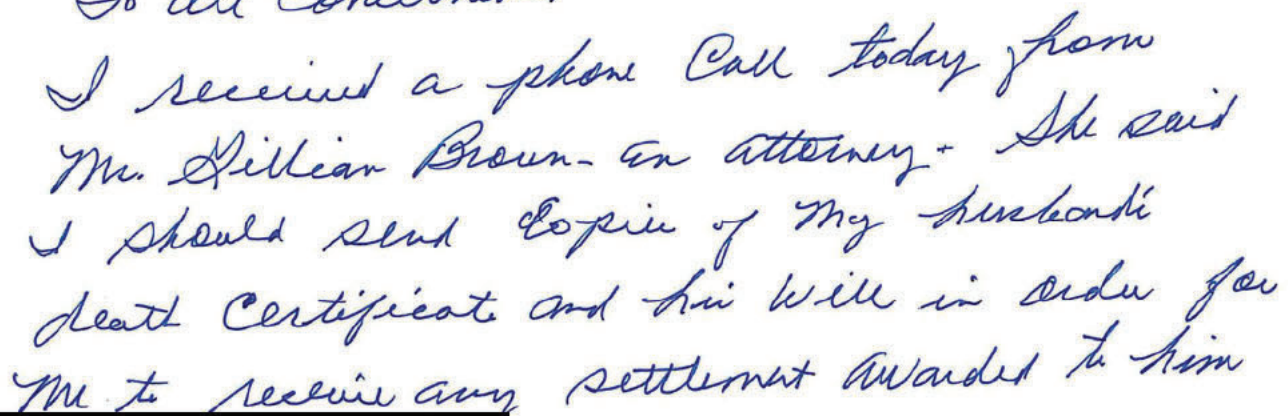 To all concerned
I received a phone Call today from
Ms. Gillian Brown - an attorney. She said
I should send Copies of My husband's
death Certificate and his Will in order for
Me to receive any settlement awarded to him